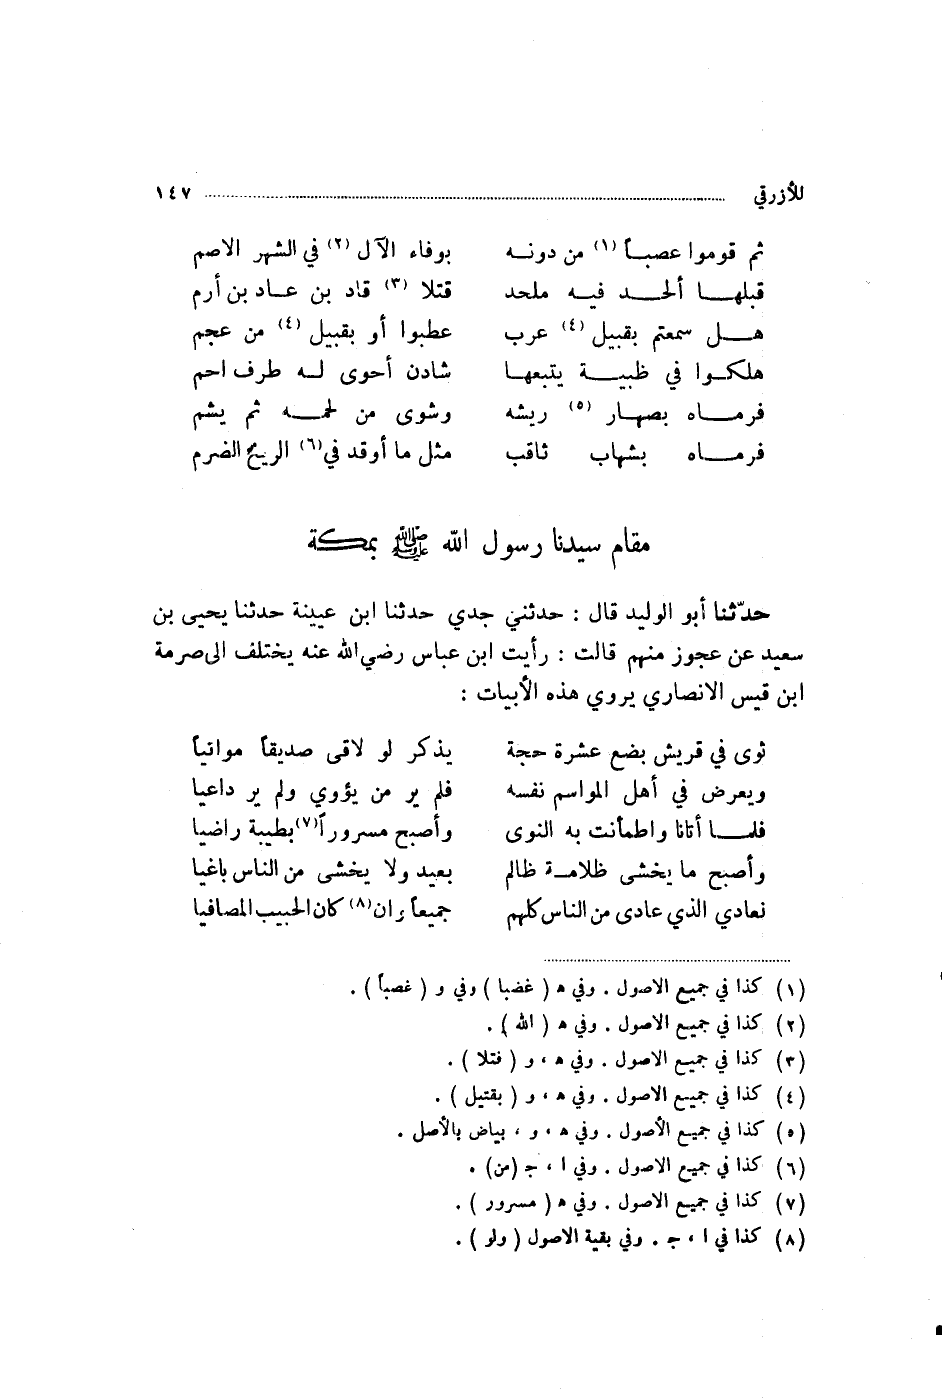 للأزرقي ........ ١٤٧
ثم قوموا عصباً (١) من دونه بوفاء الآل (٢) في الشهر الاصم
قبلها ألحد فيه ملحد قتلا (٣) قاد بن عاد بن أرم
هل سمعتم بقبيل (٤) عرب عطبوا أو بقبيل (٤) من عجم
هلكوا في ظبية يتبعها شادن أحوى له طرف احم
فرماه بصهار (٥) ريشه وشوى من لحمه ثم يشم
فرماه بشهاب ثاقب مثل ما أوقد في (٦) الريح الضرم
مقام سيدنا رسول الله ﷺ بمكة
حدّثنا أبو الوليد قال : حدثني جدي حدثنا ابن عيينة حدثنا يحيى بن
سعيد عن عجوز منهم قالت : رأيت ابن عباس رضي الله عنه يختلف الى صرمة
ابن قيس الانصاري يروي هذه الأبيات :
ثوى في قريش بضع عشرة حجة يذكر لو لاقى صديقاً مواتياً
ويعرض في أهل المواسم نفسه فلم ير من يؤوي ولم ير داعيا
فلما أتانا واطمأنت به النوى وأصبح مسروراً (٧) بطيبة راضيا
وأصبح ما يخشى ظلامة ظالم بعيد ولا يخشى من الناس باغيا
نعادي الذي عادى من الناس كلهم جميعاً وان (٨) كان الحبيب المصافيا
(١) كذا في جميع الاصول . وفي ه ( غضبا ) وفي و ( غصباً ) .
(٢) كذا في جميع الاصول . وفي ه ( الله ) .
(٣) كذا في جميع الاصول . وفي ه ، و ( فتلا ) .
(٤) كذا في جميع الاصول . وفي ه ، و ( بقتيل ) .
(٥) كذا في جميع الأصول . وفي ه ، و ، بياض بالأصل .
(٦) كذا في جميع الاصول . وفي ا ، ج (من) .
(٧) كذا في جميع الاصول . وفي ه ( مسرور ) .
(٨) كذا في ا ، ج . وفي بقية الاصول ( ولو ) .